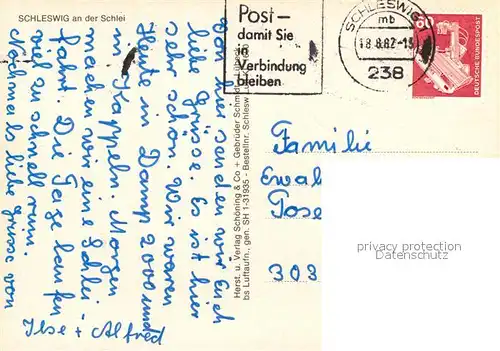 SCHLESWIG an der Schlei
Von hier senden wir Euch
liebe Grüsse. Es ist hier
sehr schön. Wir waren
Heute in Damp 2000 und
in Kappeln. Morgen
machen wir eine Schlei-
fahrt. Die Tage laufen
viel zu schnell rum.
Nochmals liebe Grüsse von
Ilse + Alfred
Herst. u. Verlag Schöning & Co + Gebrüder Schmidt, Lübeck
bs Luftaufn., gen. SH 1-31935 - Bestellnr. Schlesw
Post –
damit Sie
in
Verbindung
bleiben
SCHLESWIG 1
mb
18.8.82-15
238
60
DEUTSCHE BUNDESPOST
Familie
Ewal
Tose
303
privacy protection
VINTAGE-POSTCARDS.EU